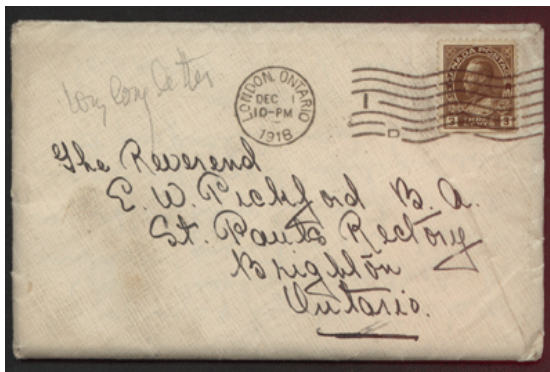 long long letter
LONDON, ONTARIO
DEC 1
10-PM
1918
1
D
CANADA POSTAGE
3 THREE CENTS 3
The Reverend
E. W. Pickford B. A.
St. Paul's Rectory
Brighton
Ontario.